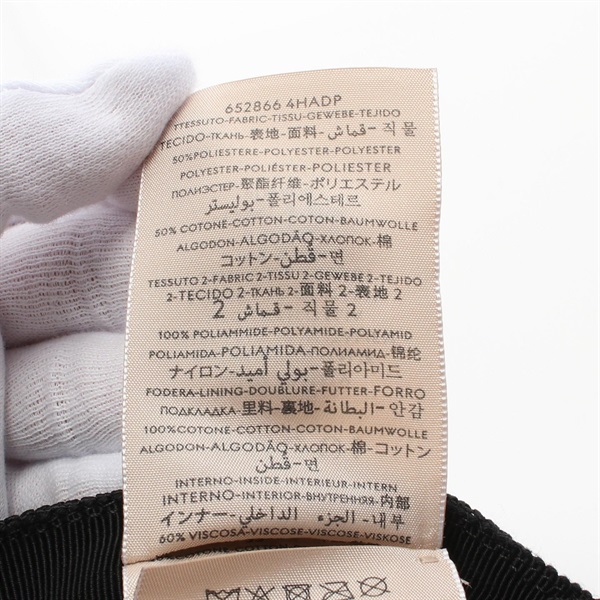 652866 4HADP
TTESSUTO-FABRIC-TISSU-GEWEBE-TEJIDO
TECIDO-ТКАНЬ-表地-面料-قماش-직물
50%POLIESTERE-POLYESTER-POLYESTER
POLYESTER-POLIÉSTER-POLIESTER
ПОЛИЭСТЕР-聚酯纤维-ポリエステル
بوليستر-폴리에스테르
50% COTONE-COTTON-COTON-BAUMWOLLE
ALGODON-ALGODÃO-ХЛОПОК-棉
コットン-قطن-면
TESSUTO 2-FABRIC 2-TISSU 2-GEWEBE 2-TEJIDO
2-TECIDO 2-ТКАНЬ 2-面料 2-表地 2
قماش 2-직물 2
100% POLIAMMIDE-POLYAMIDE-POLYAMID
POLIAMIDA-POLIAMIDA-ПОЛИАМИД-锦纶
ナイロン-بولي أميد-폴리아미드
FODERA-LINING-DOUBLURE-FUTTER-FORRO
ПОДКЛАДКА-里料-裏地-البطانة-안감
100%COTONE-COTTON-COTON-BAUMWOLLE
ALGODON-ALGODÃO-ХЛОПОК-棉-コットン
قطن-면
INTERNO-INSIDE-INTERIEUR-INTERN
INTERNO-INTERIOR-ВНУТРЕННИЙ-内部
インナー-الجزء الداخلي-내부
60% VISCOSA-VISCOSE-VISCOSE-VISKOSE